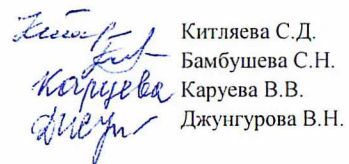 Китляева С.Д.
Бамбушева С.Н.
Каруева Каруева В.В.
Джунгурова В.Н.